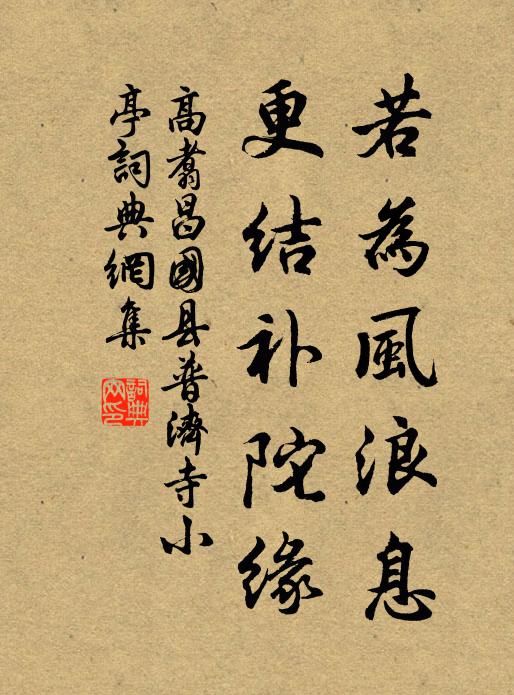 若為風浪息
更结补陀緣
高翥昌國县普濟寺小
亭詞典網集
詞典
网印